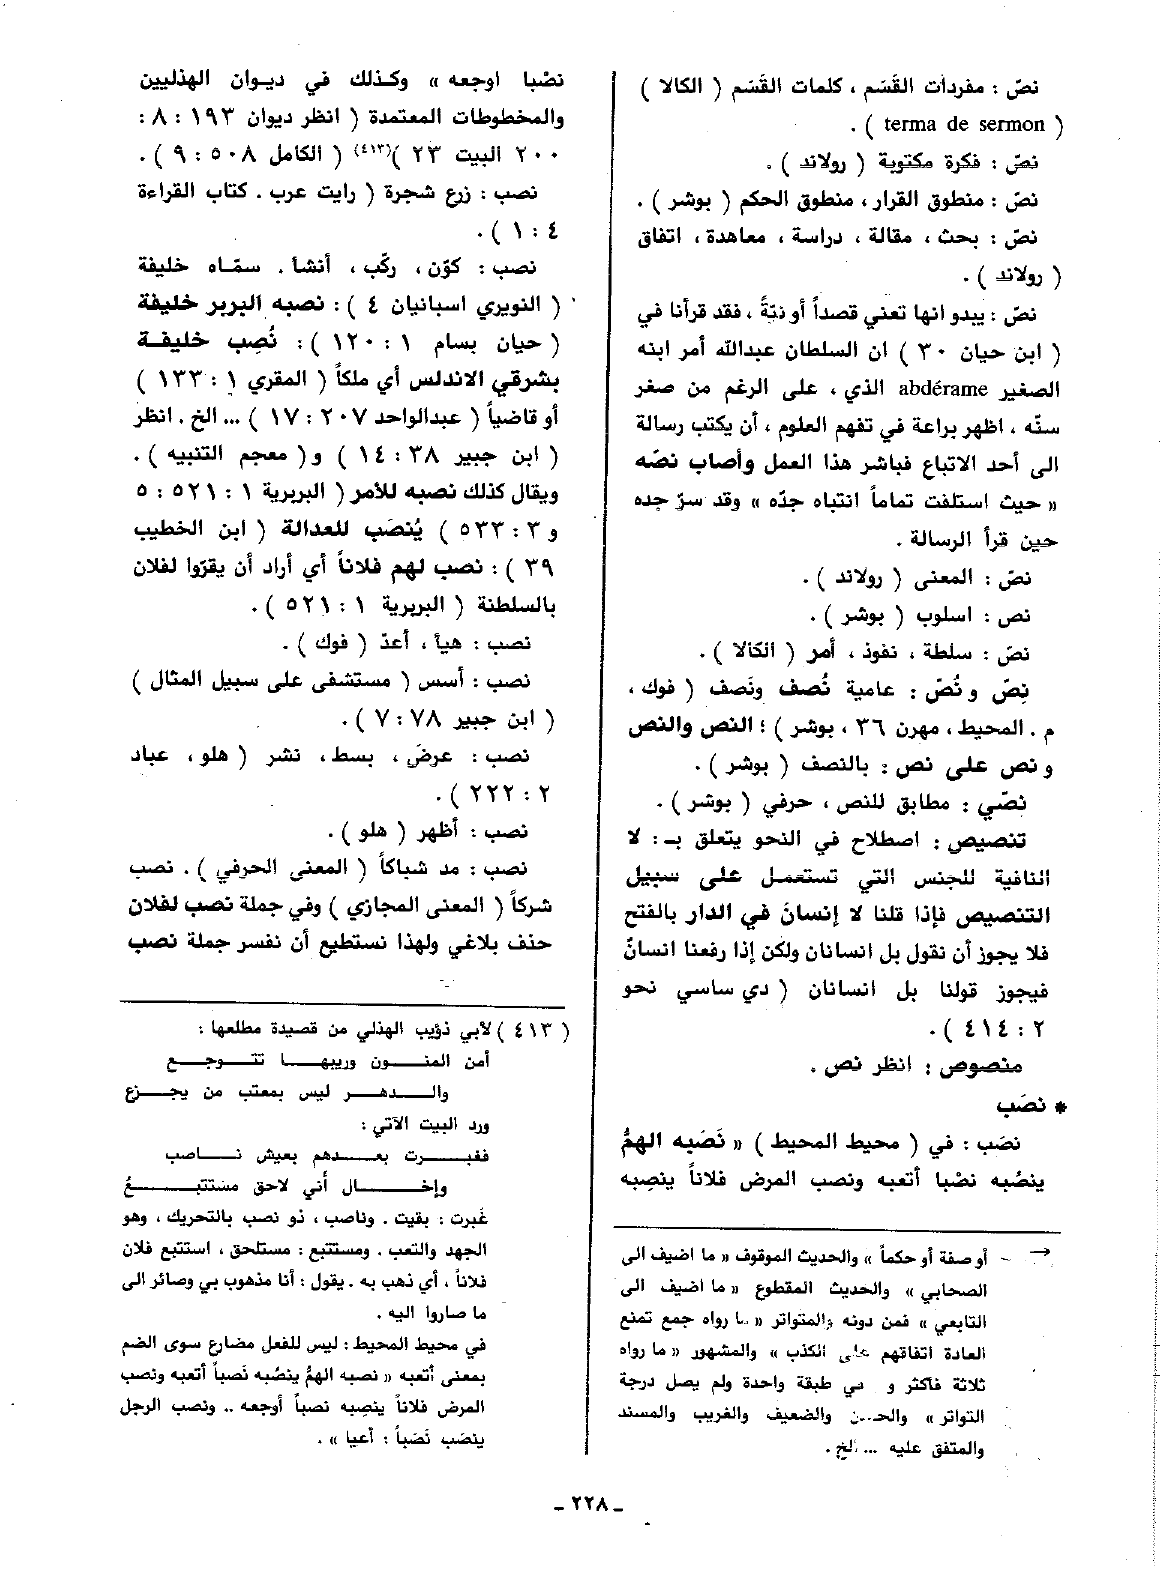 نصّ : مفردات القَسَم ، كلمات القَسَم ( الكالا )
( terma de sermon ) .
نصّ : فكرة مكتوبة ( رولاند ) .
نصّ : منطوق القرار ، منطوق الحكم ( بوشر ) .
نصّ : بحث ، مقالة ، دراسة ، معاهدة ، اتفاق
( رولاند ) .
نصّ : يبدو انها تعني قصداً أو نيّةً ، فقد قرأنا في
( ابن حيان ٣٠ ) ان السلطان عبدالله أمر ابنه
الصغير abdérame الذي ، على الرغم من صغر
سنّه ، اظهر براعة في تفهم العلوم ، أن يكتب رسالة
الى أحد الاتباع فباشر هذا العمل وأصاب نصّه
« حيث استلفت تماماً انتباه جدّه » وقد سرّ جده
حين قرأ الرسالة .
نصّ : المعنى ( رولاند ) .
نص : اسلوب ( بوشر ) .
نصّ : سلطة ، نفوذ ، أمر ( الكالا ) .
نِصّ و نُصّ : عامية نُصف ونَصف ( فوك ،
م . المحيط ، مهرن ٣٦ ، بوشر ) ؛ النص والنص
و نص على نص : بالنصف ( بوشر ) .
نصّي : مطابق للنص ، حرفي ( بوشر ) .
تنصيص : اصطلاح في النحو يتعلق بـ : لا
النافية للجنس التي تستعمل على سبيل
التنصيص فإذا قلنا لا إنسانَ في الدار بالفتح
فلا يجوز أن نقول بل انسانان ولكن إذا رفعنا انسانٌ
فيجوز قولنا بل انسانان ( دي ساسي نحو
٢ : ٤١٤ ) .
منصوص : انظر نص .
* نصَب
نصَب : في ( محيط المحيط ) « نَصَبه الهمُّ
ينصُبه نصْبا أتعبه ونصب المرض فلاناً ينصِبه
→ - أو صفة أو حكماً » والحديث الموقوف « ما اضيف الى
الصحابي » والحديث المقطوع « ما اضيف الى
التابعي » فمن دونه والمتواتر « ما رواه جمع تمنع
العادة اتفاقهم على الكذب » والمشهور « ما رواه
ثلاثة فاكثر و في طبقة واحدة ولم يصل درجة
التواتر » والحسن والضعيف والغريب والمسند
والمتفق عليه ... الخ .
نصْبا اوجعه » وكذلك في ديوان الهذليين
والمخطوطات المعتمدة ( انظر ديوان ١٩٣ : ٨ :
٢٠٠ البيت ٢٣ )(٤١٣) ( الكامل ٥٠٨ : ٩ ) .
نصب : زرع شجرة ( رايت عرب . كتاب القراءة
٤ : ١ ) .
نصب : كوّن ، ركّب ، أنشأ . سمّاه خليفة
( النويري اسبانيان ٤ ) : نصبه البربر خليفة
( حيان بسام ١ : ١٢٠ ) : نُصِب خليفة
بشرقي الاندلس أي ملكاً ( المقري ١ : ١٣٣ )
أو قاضياً ( عبدالواحد ٢٠٧ : ١٧ ) ... الخ . انظر
( ابن جبير ٣٨ : ١٤ ) و ( معجم التنبيه ) .
ويقال كذلك نصبه للأمر ( البربرية ١ : ٥٢١ : ٥
و ٢ : ٥٣٣ ) يُنصَب للعدالة ( ابن الخطيب
٣٩ ) : نصب لهم فلاناً أي أراد أن يقرّوا لفلان
بالسلطنة ( البربرية ١ : ٥٢١ ) .
نصب : هيأ ، أعدّ ( فوك ) .
نصب : أسس ( مستشفى على سبيل المثال )
( ابن جبير ٧٨ : ٧ ) .
نصب : عرضَ ، بسط ، نشر ( هلو ، عباد
٢ : ٢٢٢ ) .
نصب : أظهر ( هلو ) .
نصب : مد شباكاً ( المعنى الحرفي ) . نصب
شركاً ( المعنى المجازي ) وفي جملة نصب لفلان
حنف بلاغي ولهذا نستطيع أن نفسر جملة نصب
( ٤١٣ ) لأبي ذؤيب الهذلي من قصيدة مطلعها :
أمن المنون وريبها تتوجع
والدهر ليس بمعتب من يجزع
ورد البيت الآتي :
فغبرت بعدهم بعيش ناصب
وإخال أني لاحق مستتبعُ
غَبرت : بقيت . وناصب ، ذو نصب بالتحريك ، وهو
الجهد والتعب . ومستتبع : مستلحق ، استتبع فلان
فلاناً ، أي ذهب به . يقول : أنا مذهوب بي وصائر الى
ما صاروا اليه .
في محيط المحيط : ليس للفعل مضارع سوى الضم
بمعنى أتعبه « نصبه الهمُّ ينصُبه نَصباً أتعبه ونصب
المرض فلاناً ينصِبه نصباً أوجعه .. ونصب الرجل
ينصَب نَصَباً : أعيا » .
ـ ٢٢٨ ـ